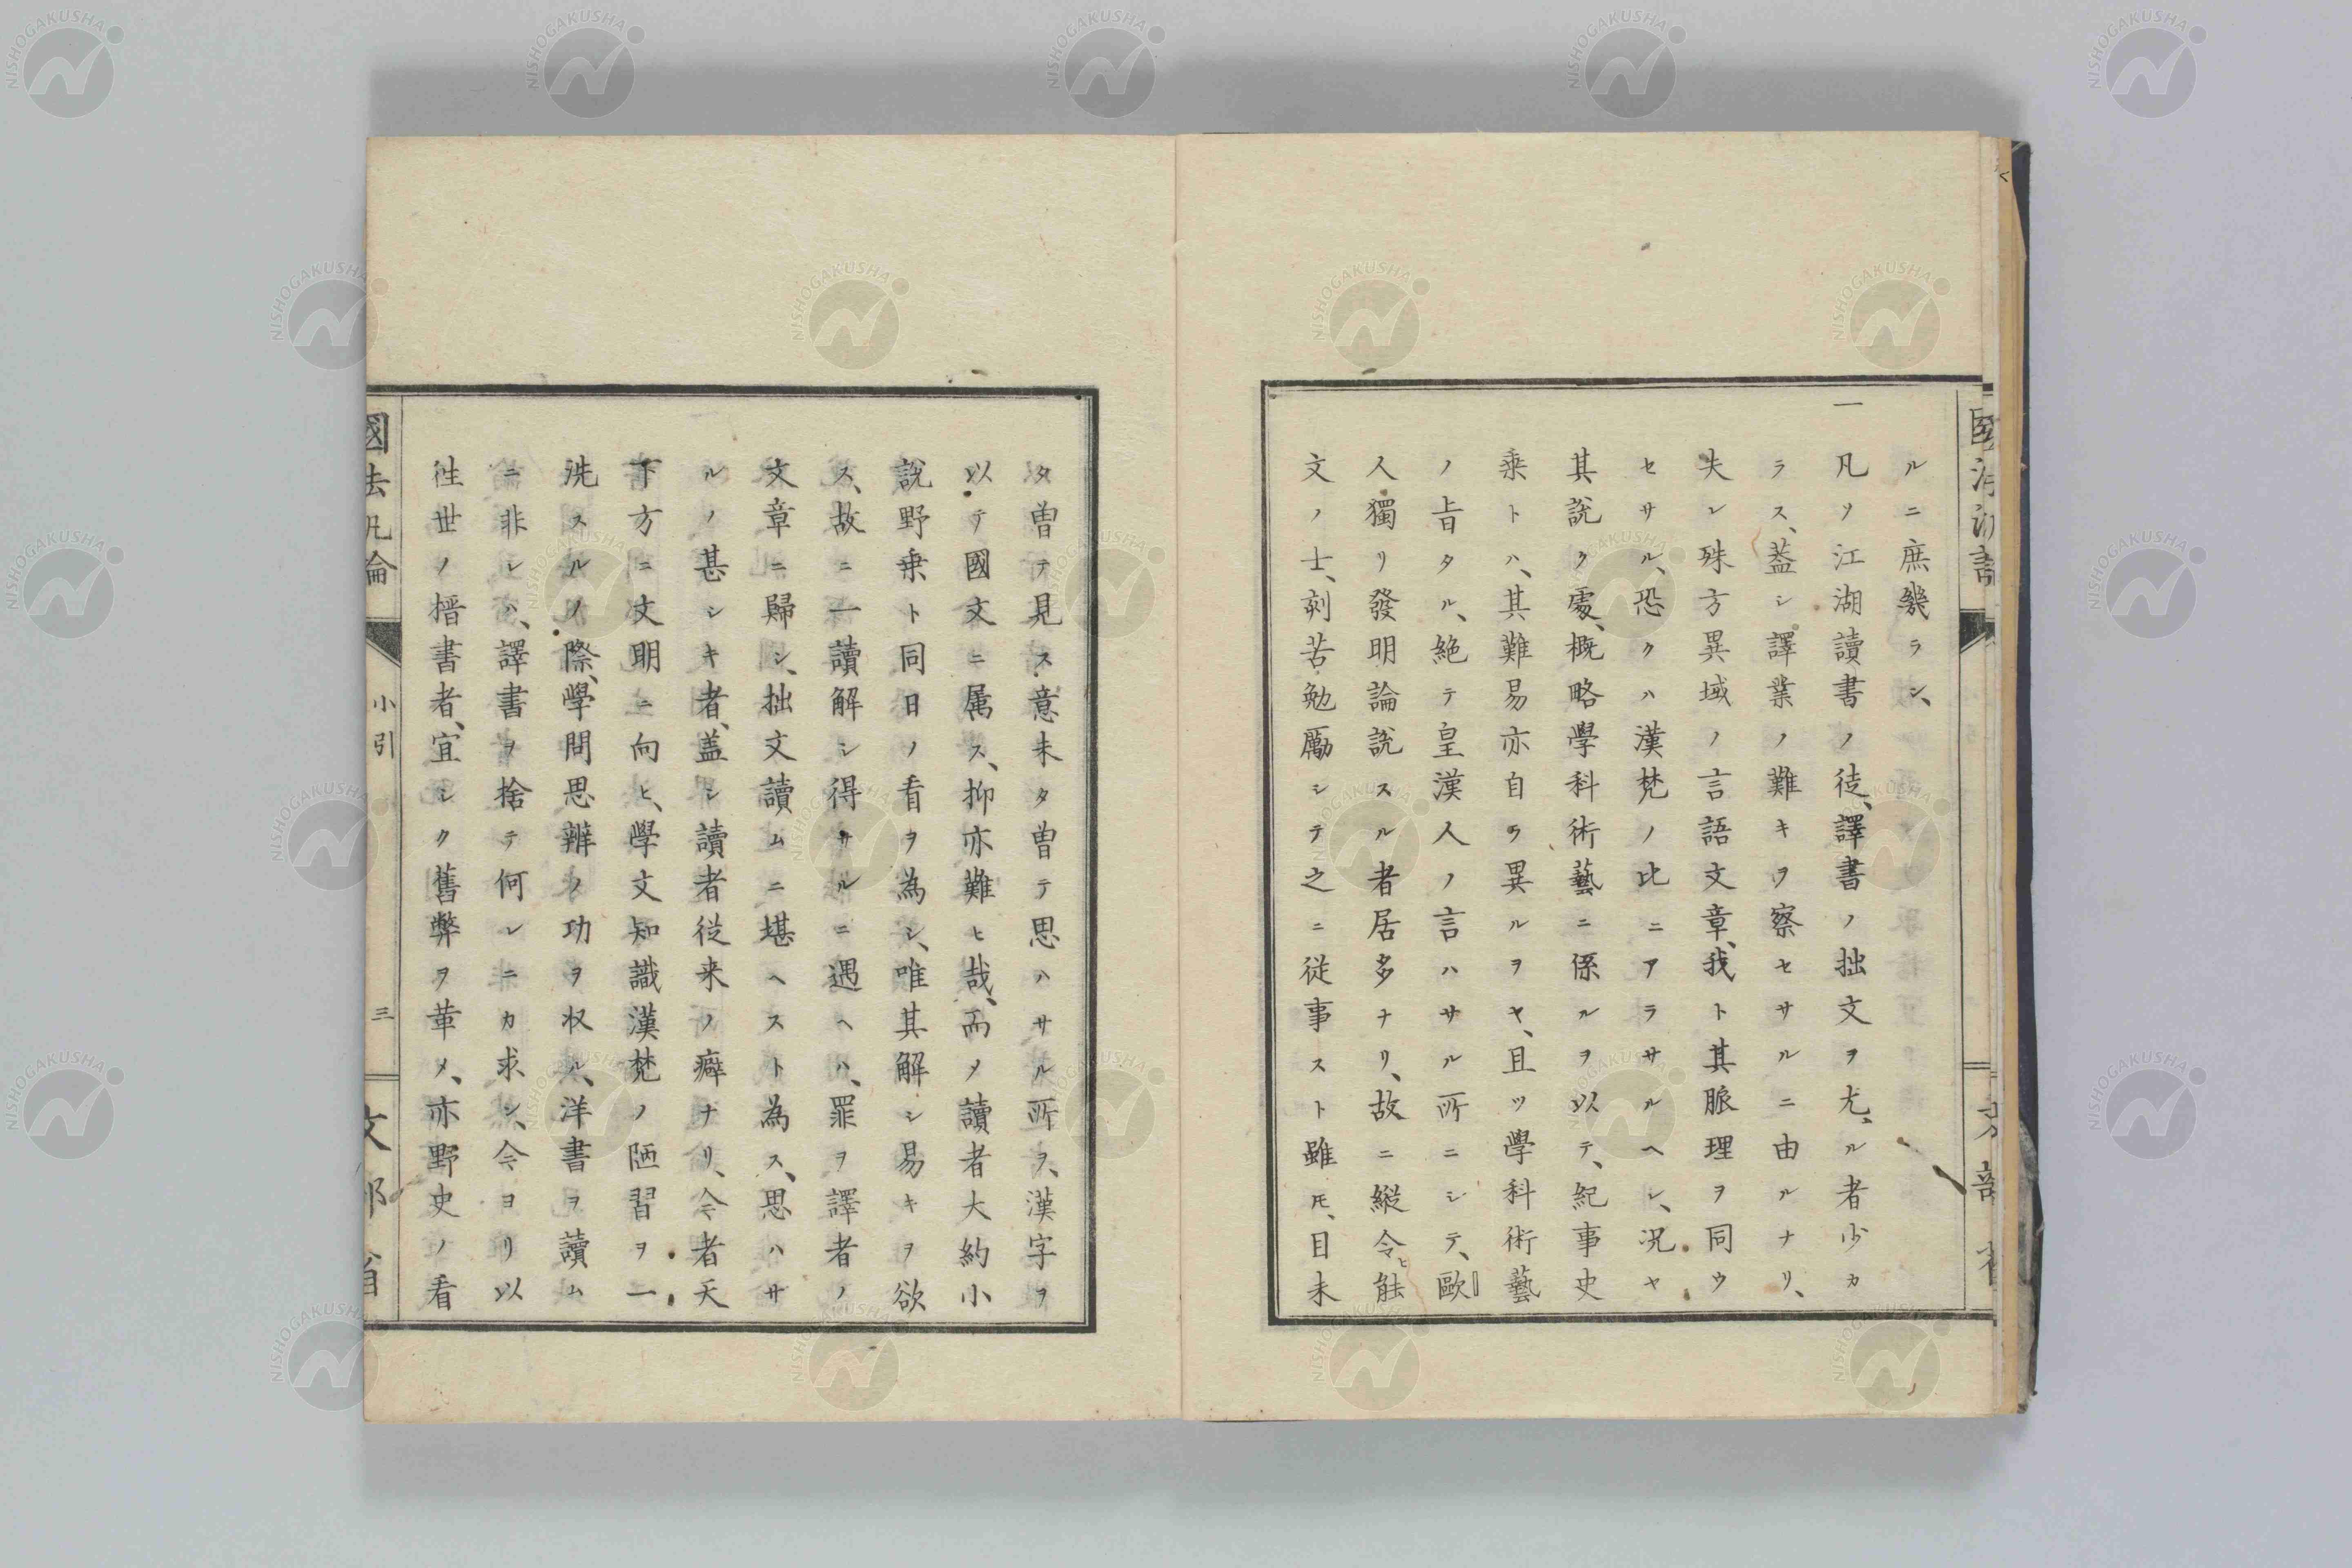 ルニ庶幾ラン、
一凡ソ江湖讀書ノ徒、譯書ノ拙文ヲ尤、ル者少カ
ラス、蓋シ譯業ノ難キヲ察セサルニ由ルナリ、
夫レ殊方異域ノ言語文章、我ト其脈理ヲ同ウ
セサル、恐クハ漢梵ノ比ニアラサルヘシ、况ヤ
其說ク處、概略學科術藝ニ係ルヲ以テ、紀事史
乗トハ、其難易亦自ラ異ルヲヤ、且ツ學科術藝
ノ旨タル、絶テ皇漢人ノ言ハサル所ニシテ、歐
人獨リ發明論說スル者居多ナリ、故ニ縱令ヒ能
文ノ士、刻苦勉勵シテ之ニ從事スト雖𪜈、目未
タ曽テ見ス、意未タ曽テ思ハサル所ヲ、漢字ヲ
以テ國文ニ属ス、抑亦難ヒ哉、而〆讀者大約小
說野乗ト同日ノ看ヲ為シ、唯其解シ易キヲ欲
ス、故ニ一讀解シ得サルニ遇ヘハ、罪ヲ譯者ノ
文章ニ歸シ、拙文讀ムニ堪ヘスト為ス、思ハサ
ルノ甚シキ者、盖シ讀者從来ノ癖ナリ、今者天
下方ニ文明ニ向ヒ、學文知識漢梵ノ陋習ヲ一
洗スルノ際、學問思辨ノ功ヲ收ル、洋書ヲ讀ム
ニ非レハ、譯書ヲ捨テ何レニカ求ン、今ヨリ以
徃世ノ搢書者、宜シク舊弊ヲ革メ、亦野史ノ看
國法凡論
小引
三
文部省